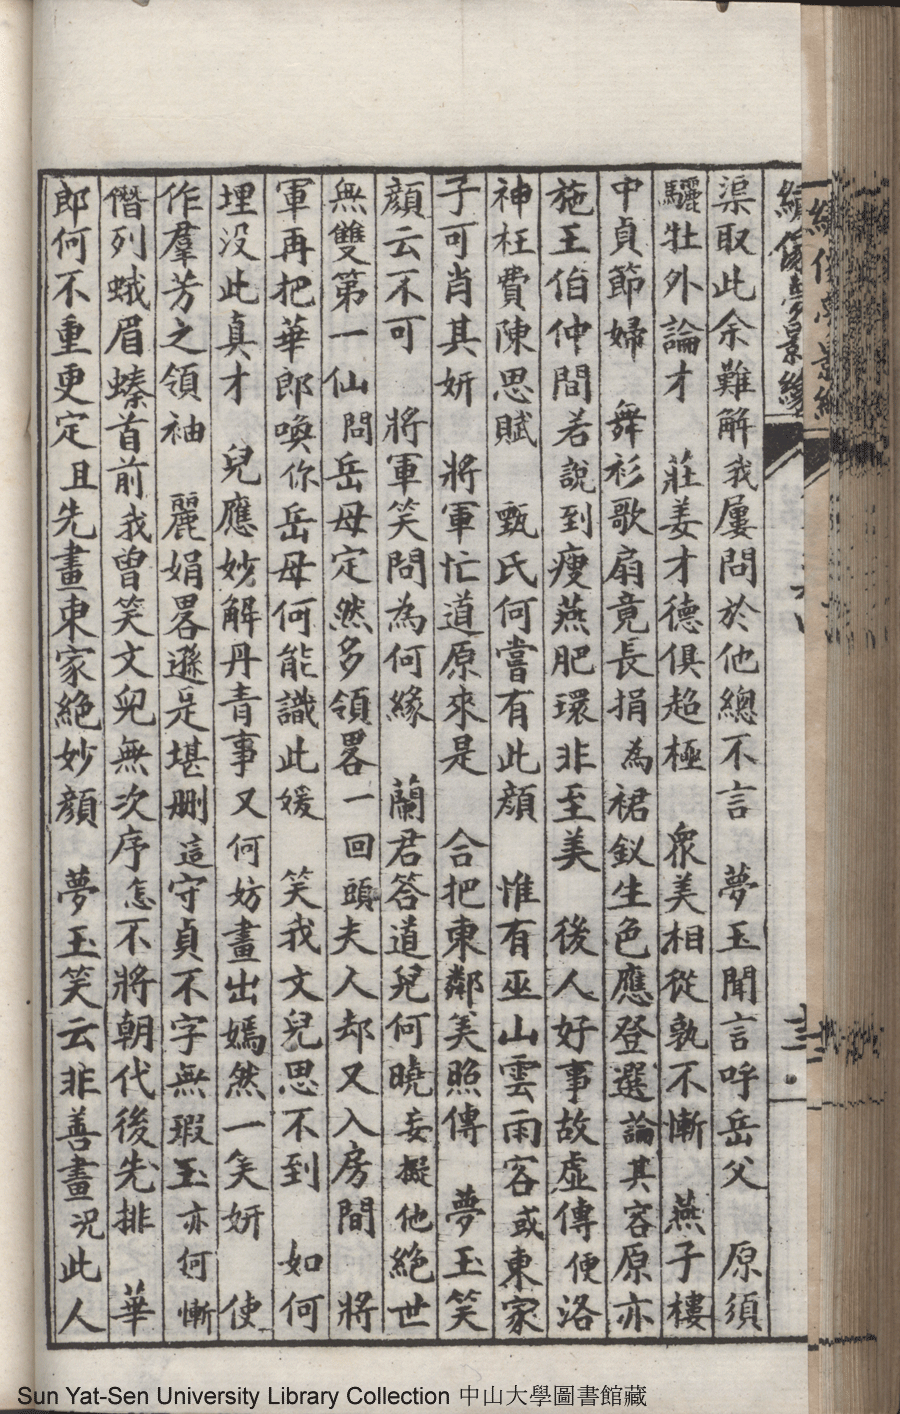 渠取此余難解我屢問於他總不言　夢玉聞言呼岳父　原須
驪牡外論才　莊姜才德俱超極　衆美相從孰不慚　燕子樓
中貞節婦　舞衫歌扇竟長捐　為裙釵生色應登選論其容原亦
施王伯仲間若說到瘦燕肥環非至美　後人好事故虛傳便洛
神枉費陳思賦　甄氏何嘗有此顏　惟有巫山雲雨客或東家
子可肖其妍　將軍忙道原來是　合把東鄰美照傳　夢玉笑
顏云不可　將軍笑問為何緣　蘭君答道兒何曉妄擬他絕世
無雙第一仙問岳母定然多領畧一回頭夫人却又入房間　將
軍再把華郎喚你岳母何能識此媛　笑我文兒思不到　如何
埋没此真才　兒應妙解丹青事又何妨畫出嫣然一笑妍　使
作羣芳之領袖　麗娟畧遜是堪刪這守貞不字無瑕玉亦何慚
僭列蛾眉螓首前我曾笑文兒無次序怎不將朝代後先排　華
郎何不重更定且先畫東家絕妙顏　夢玉笑云非善畫况此人
Sun Yat-Sen University Library Collection 中山大學圖書館藏